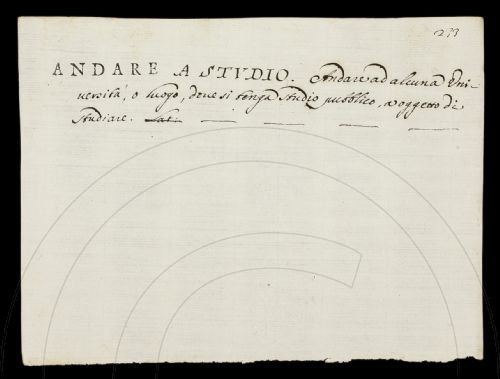 293
ANDARE A STVDIO. Andare ad alcuna Uni-
versità, o luogo, dove si tenga studio pubblico, a oggetto di
studiare. Lat.